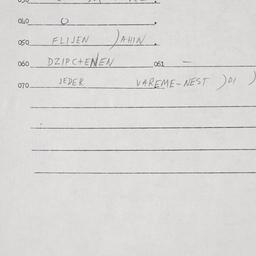 040 O .
050 FLIJEN )AHIN .
060 DZIPCHENEN 061 –
070 JEDER VAREME-NEST )DI )